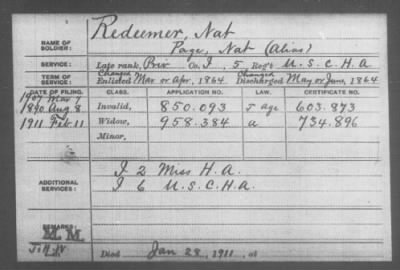 NAME OF SOLDIER: Redeemer, Nat
Page, Nat (Alias)
SERVICE: Late rank, Priv Co. I, 5 Reg't U.S.C.H.A
TERM OF SERVICE: Changed Enlisted Mar or Apr, 1864 Changed Discharged May or June, 1864
DATE OF FILING. CLASS. APPLICATION NO. LAW. CERTIFICATE NO.
1907 Mar 7
1890 Aug 8 Invalid, 850.093 J Age 603.873
1911 Feb 11 Widow, 958.384 a 734.896
Minor,
ADDITIONAL SERVICES: I 2 Miss H.A.
I 6 U.S.C.H.A.
REMARKS:
M.M.
Died Jan 28, 1911, at